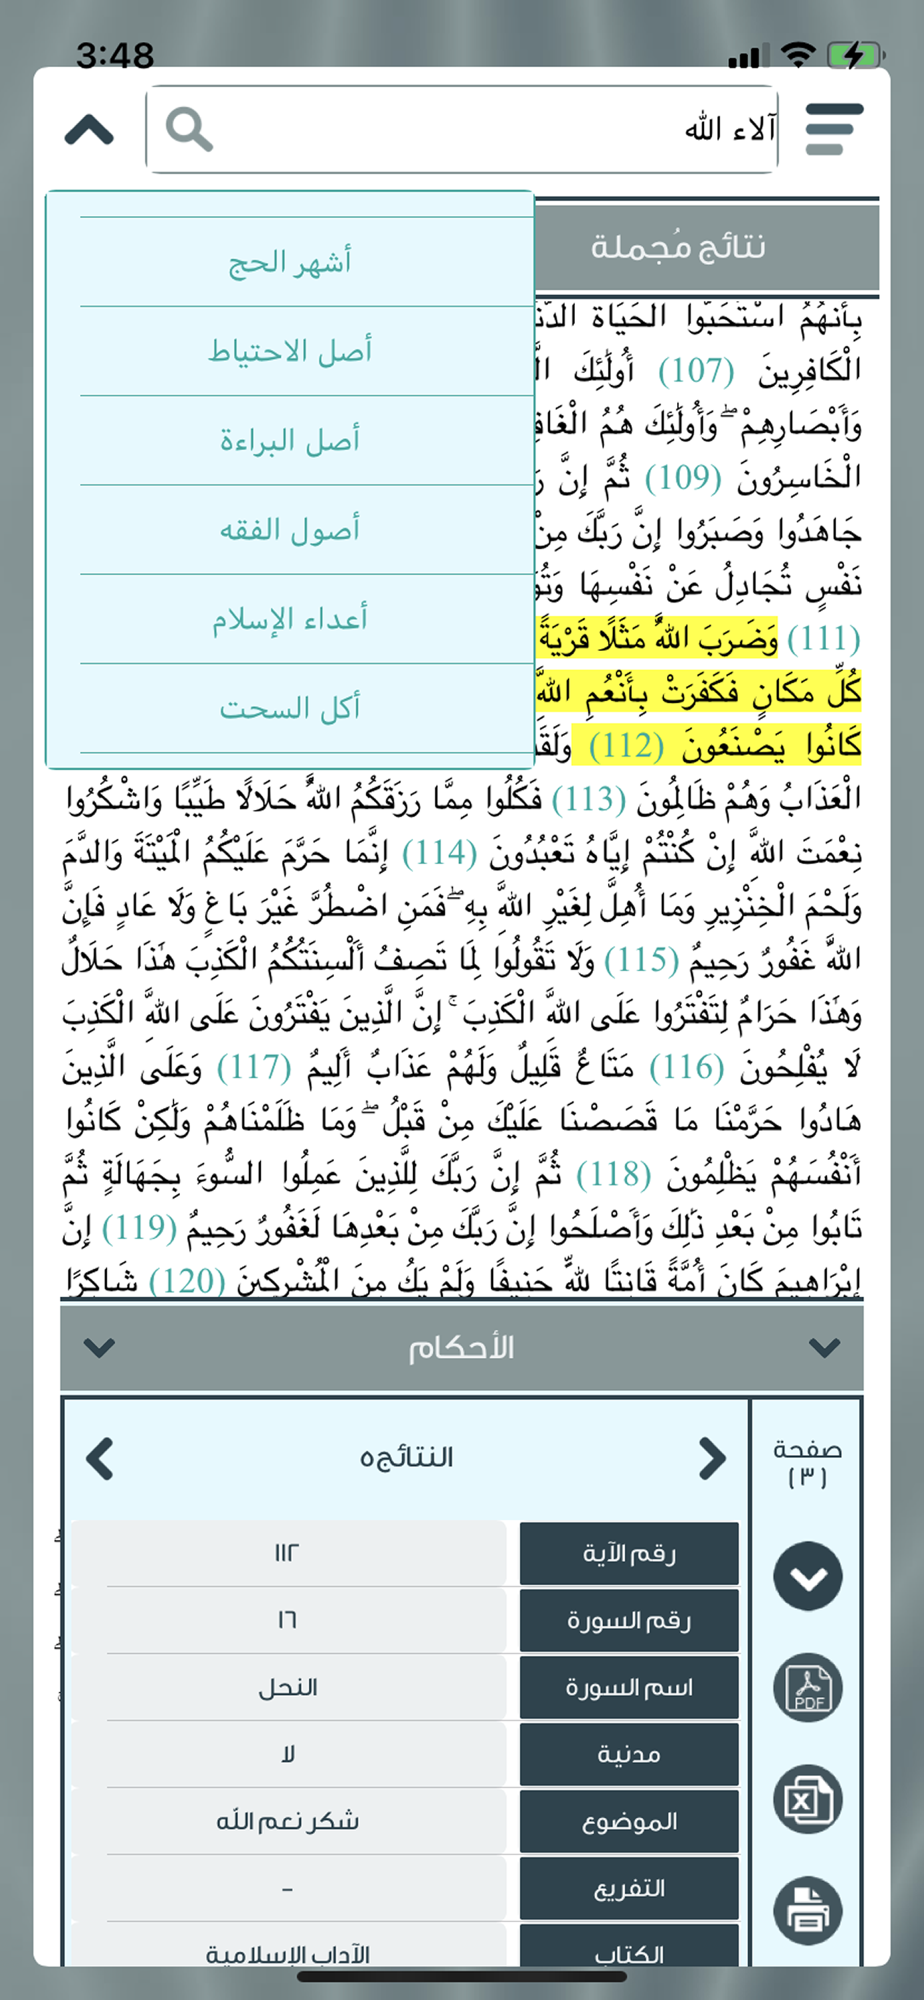 3:48
آلاء الله
نتائج مُجملة
أشهر الحج
أصل الاحتياط
أصل البراءة
أصول الفقه
أعداء الإسلام
أكل السحت
بِأَنَّهُمُ اسْتَحَبُّوا الْحَيَاةَ
الْكَافِرِينَ (107) أُولَٰئِكَ
وَأَبْصَارِهِمْ ۖ وَأُولَٰئِكَ هُمُ
الْخَاسِرُونَ (109) ثُمَّ إِنَّ
جَاهَدُوا وَصَبَرُوا إِنَّ رَبَّكَ مِنْ
نَفْسٍ تُجَادِلُ عَنْ نَفْسِهَا
(111) وَضَرَبَ اللَّهُ مَثَلًا قَرْيَةً
كُلِّ مَكَانٍ فَكَفَرَتْ بِأَنْعُمِ اللَّهِ
كَانُوا يَصْنَعُونَ (112)
الْعَذَابُ وَهُمْ ظَالِمُونَ (113) فَكُلُوا مِمَّا رَزَقَكُمُ اللَّهُ حَلَالًا طَيِّبًا وَاشْكُرُوا
نِعْمَتَ اللَّهِ إِنْ كُنْتُمْ إِيَّاهُ تَعْبُدُونَ (114) إِنَّمَا حَرَّمَ عَلَيْكُمُ الْمَيْتَةَ وَالدَّمَ
وَلَحْمَ الْخِنْزِيرِ وَمَا أُهِلَّ لِغَيْرِ اللَّهِ بِهِ ۖ فَمَنِ اضْطُرَّ غَيْرَ بَاغٍ وَلَا عَادٍ فَإِنَّ
اللَّهَ غَفُورٌ رَحِيمٌ (115) وَلَا تَقُولُوا لِمَا تَصِفُ أَلْسِنَتُكُمُ الْكَذِبَ هَٰذَا حَلَالٌ
وَهَٰذَا حَرَامٌ لِتَفْتَرُوا عَلَى اللَّهِ الْكَذِبَ ۚ إِنَّ الَّذِينَ يَفْتَرُونَ عَلَى اللَّهِ الْكَذِبَ
لَا يُفْلِحُونَ (116) مَتَاعٌ قَلِيلٌ وَلَهُمْ عَذَابٌ أَلِيمٌ (117) وَعَلَى الَّذِينَ
هَادُوا حَرَّمْنَا مَا قَصَصْنَا عَلَيْكَ مِنْ قَبْلُ ۖ وَمَا ظَلَمْنَاهُمْ وَلَٰكِنْ كَانُوا
أَنْفُسَهُمْ يَظْلِمُونَ (118) ثُمَّ إِنَّ رَبَّكَ لِلَّذِينَ عَمِلُوا السُّوءَ بِجَهَالَةٍ ثُمَّ
تَابُوا مِنْ بَعْدِ ذَٰلِكَ وَأَصْلَحُوا إِنَّ رَبَّكَ مِنْ بَعْدِهَا لَغَفُورٌ رَحِيمٌ (119) إِنَّ
إِبْرَاهِيمَ كَانَ أُمَّةً قَانِتًا لِلَّهِ حَنِيفًا وَلَمْ يَكُ مِنَ الْمُشْرِكِينَ (120) شَاكِرًا
الأحكام
صفحة
(٣)
النتائج٥
رقم الآية ١١٢
رقم السورة ١٦
اسم السورة النحل
مدنية لا
الموضوع شكر نعم الله
التفريع -
الكتاب الآداب الإسلامية
PDF
X